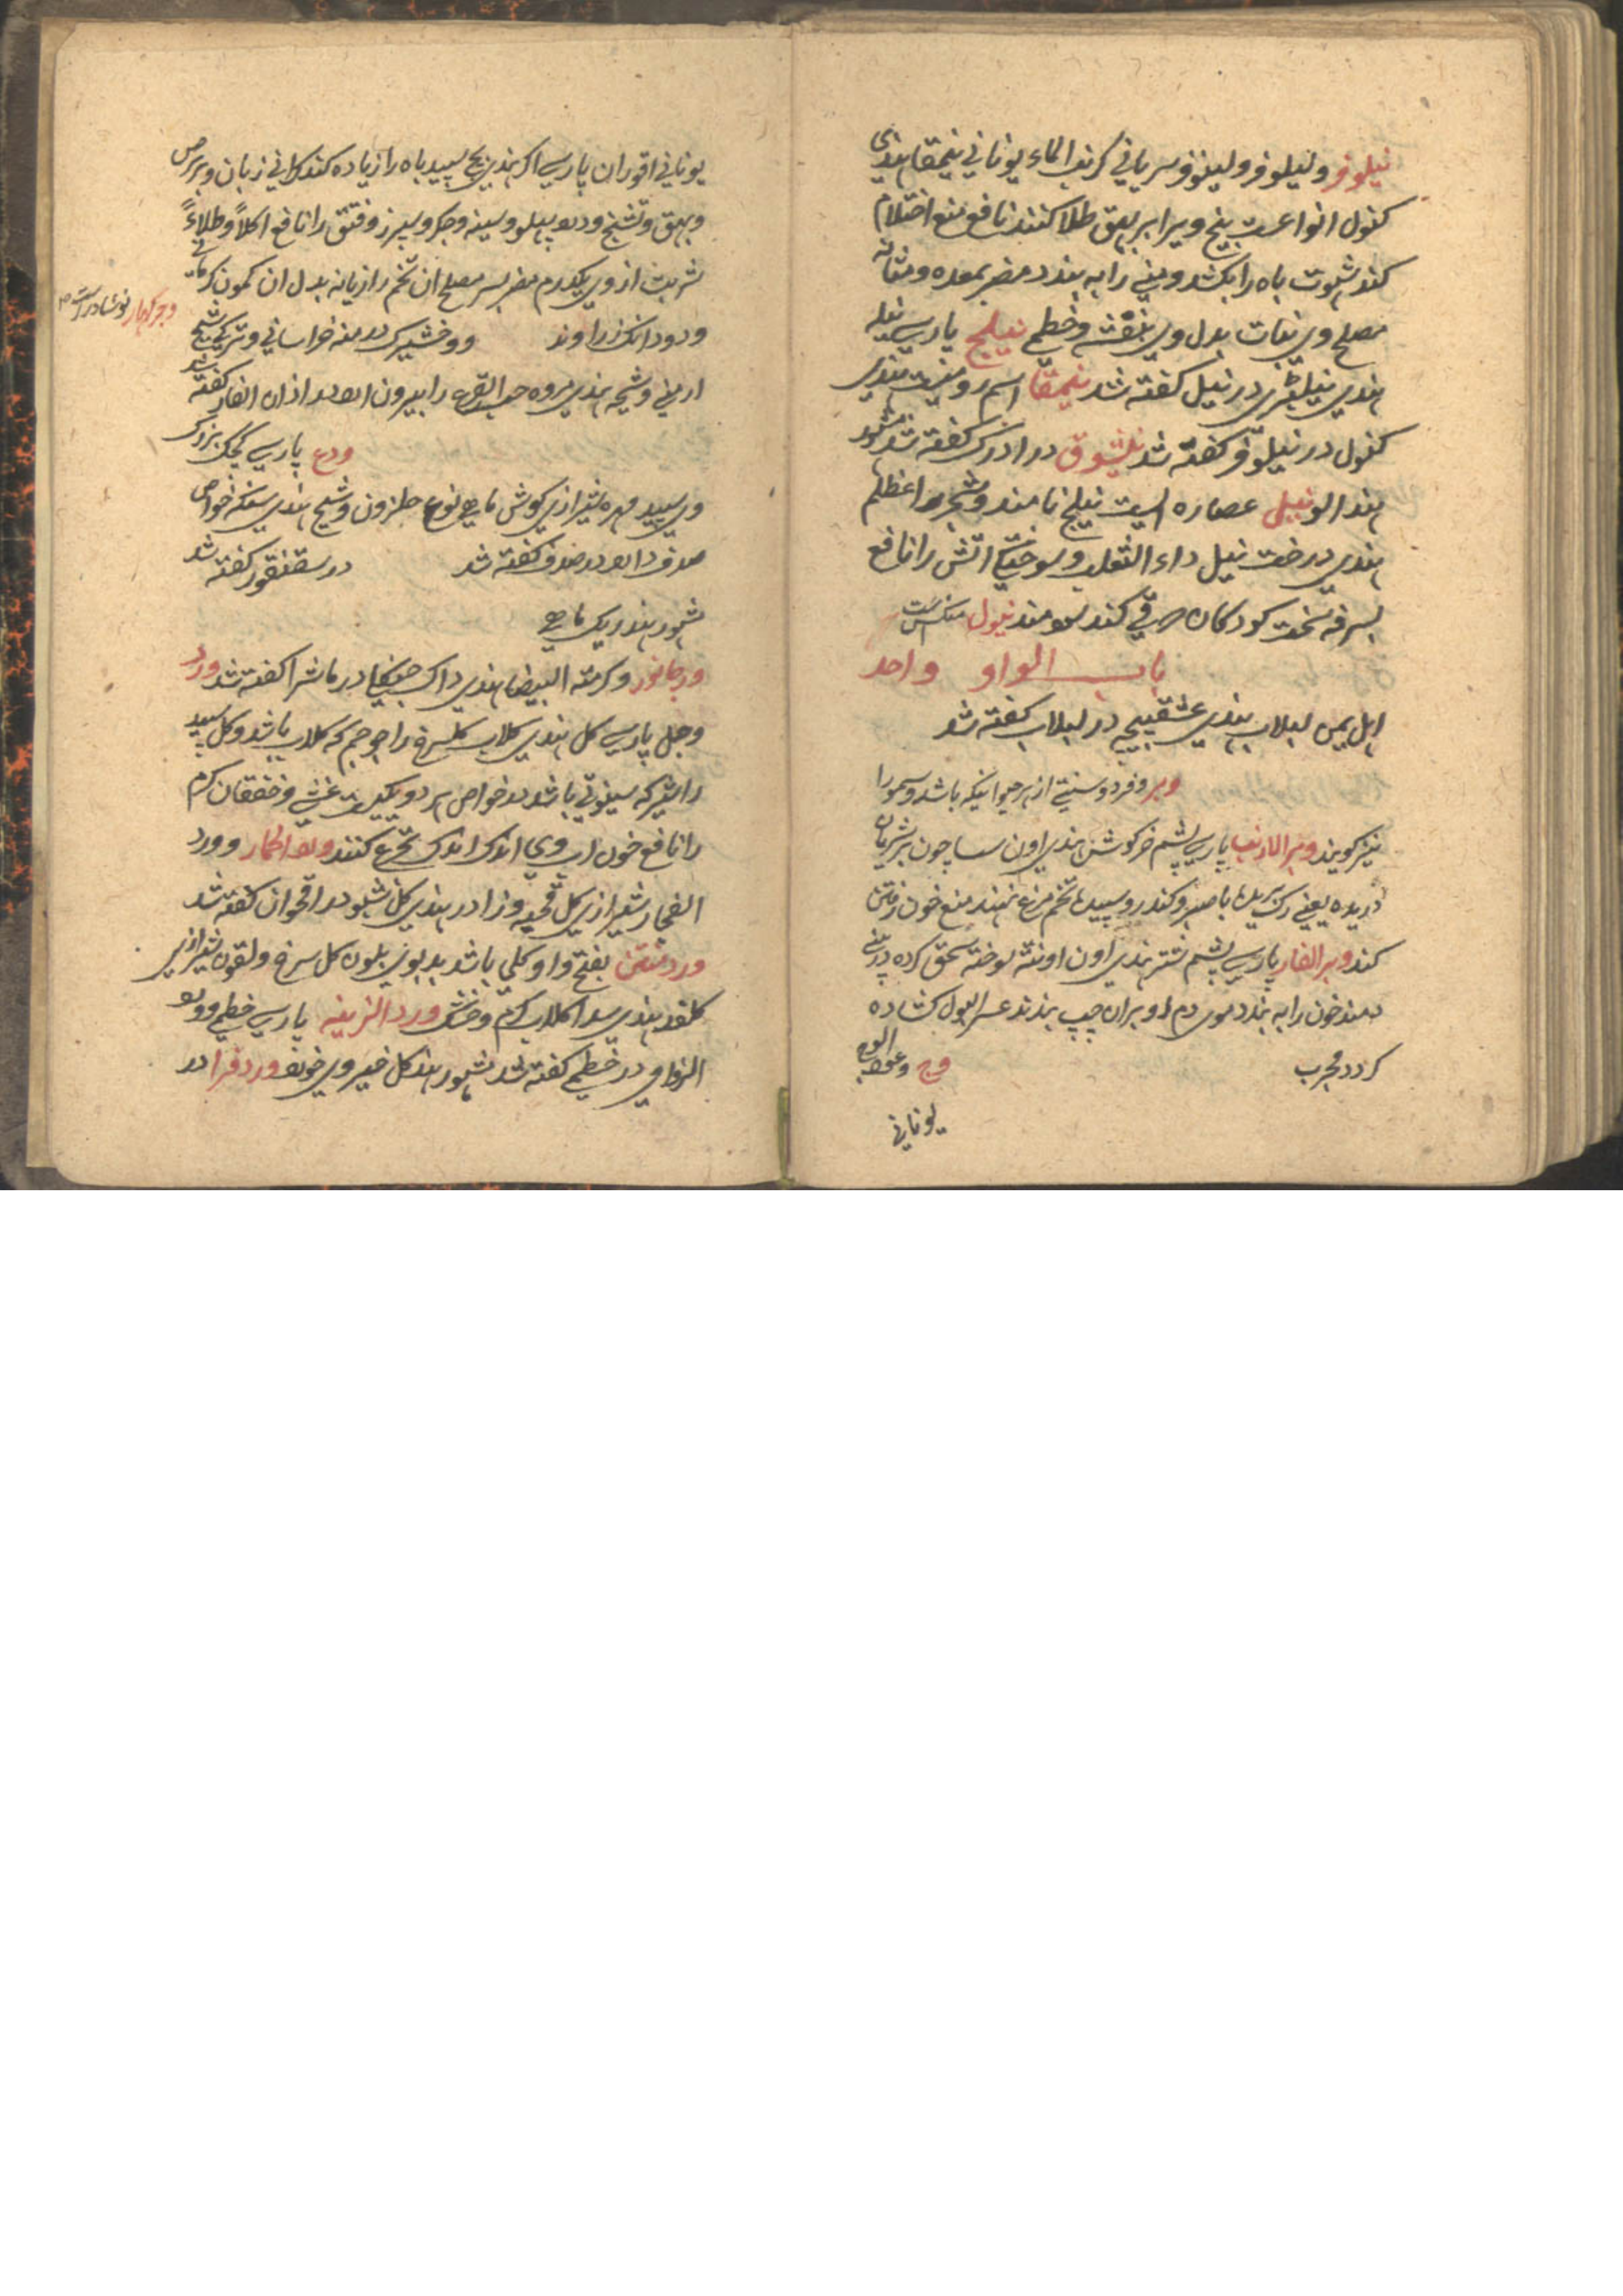 نیلوفر و لیلوفر و لینوفر سریانی کرنب الماء یونانی نیمقا هندی
کنول انواعست بیخ ویرا بر بهق طلا کنند نافع منع احتلام
کند شهوت باه را بکشد و منی را به بندد مضر بمعده و مثانه
مصلح وی نبات بدل وی بنفشه و خطمی نیلج پارسی نیله
هندی در نیل گفته شد نیمقا اسم رومیست هندی
کنول در نیلوفر گفته شد نیشوق در ادرک گفته شد مشهور
هند الو نیل عصاره ایست نیلج نامند و شجر اعظلم
هندی درخت نیل داء الثعلب و سوختگی اتش را نافع
بسرفه سخت کودکان که قی کند سودمند نیول منکس است
باب الواو واحد
اهل یمن لبلاب هندی عشقپیچه در لبلاب گفته شد
وبر و فرو و سنتی از هر حیوانیکه باشد و سمور را
نیز گویند وبر الارنب پارسی پشم خرگوش هندی اون سسا چون بر شریان
دریده یعنی رگ بریده با صبر و کندر و سپیده تخم مرغ نهند منع خون رفتن
کند وبر الفار پارسی پشم شتر هندی اون اونٹ سوخته سحق کرده در بینی
دمند خون را به بندد موی دم او بران چپ بندند عسر البول کشاده
گردد مجرب وج و عود الوج
یونانی
یونانی اقوران پارسی اکر هندی بچ سپید باه را زیاده کند گرانی زبان و برص
و بهق و تشنج و درد پهلو و سینه و جگر و سپرز و فتق را نافع اکلاً و طلاءً
شربت از وی یکدرم مضر بسر مصلح ان تخم رازیانه بدل ان کمون کرمانی
و دو دانگ زراوند ووخشیرک درمنه خراسانی و ترکی شیح
وجر کهار نوشادر است
ارمنی و شیحه هندی مروه حب القرع را بیرون ارد در اذان الفار گفته شد
ودع پارسی کجک بزرگ
وی سپید مهره شیرازی گوش ماهی نوع حلزون و شنج هندی سنکه خواص
صدف دارد در صدف گفته شد در سقنقور گفته شد
مشهور هند ریگ ماهی
ورجانور و کرمته البیضا هندی داک جنگلی در ماشرا گفته شد ورد
و جل پارسی گل هندی گلاب گلسرخ را جوجم که گلاب باشد و گل سپید
را نثر که سیوتی باشد در خواص هر دو یکیست غشی و خفقان گرم
را نافع خون از وی اندک اندک تجرع کنند ورد الحمار و ورد
الفجار شیرازی گل قحبه و زادر هندی گل شبو در اقحوان گفته شد
ورد منتن بفتح واو گلی باشد بدبوی بلون گل سرخ و لقون شیرازی
گلقند هندی سدا گلاب گرم و خشک ورد الزینه پارسی خطمی و ورد
الزوانی در خطمی گفته شد مشهور هند گل خیروی خوند ورد فرا در